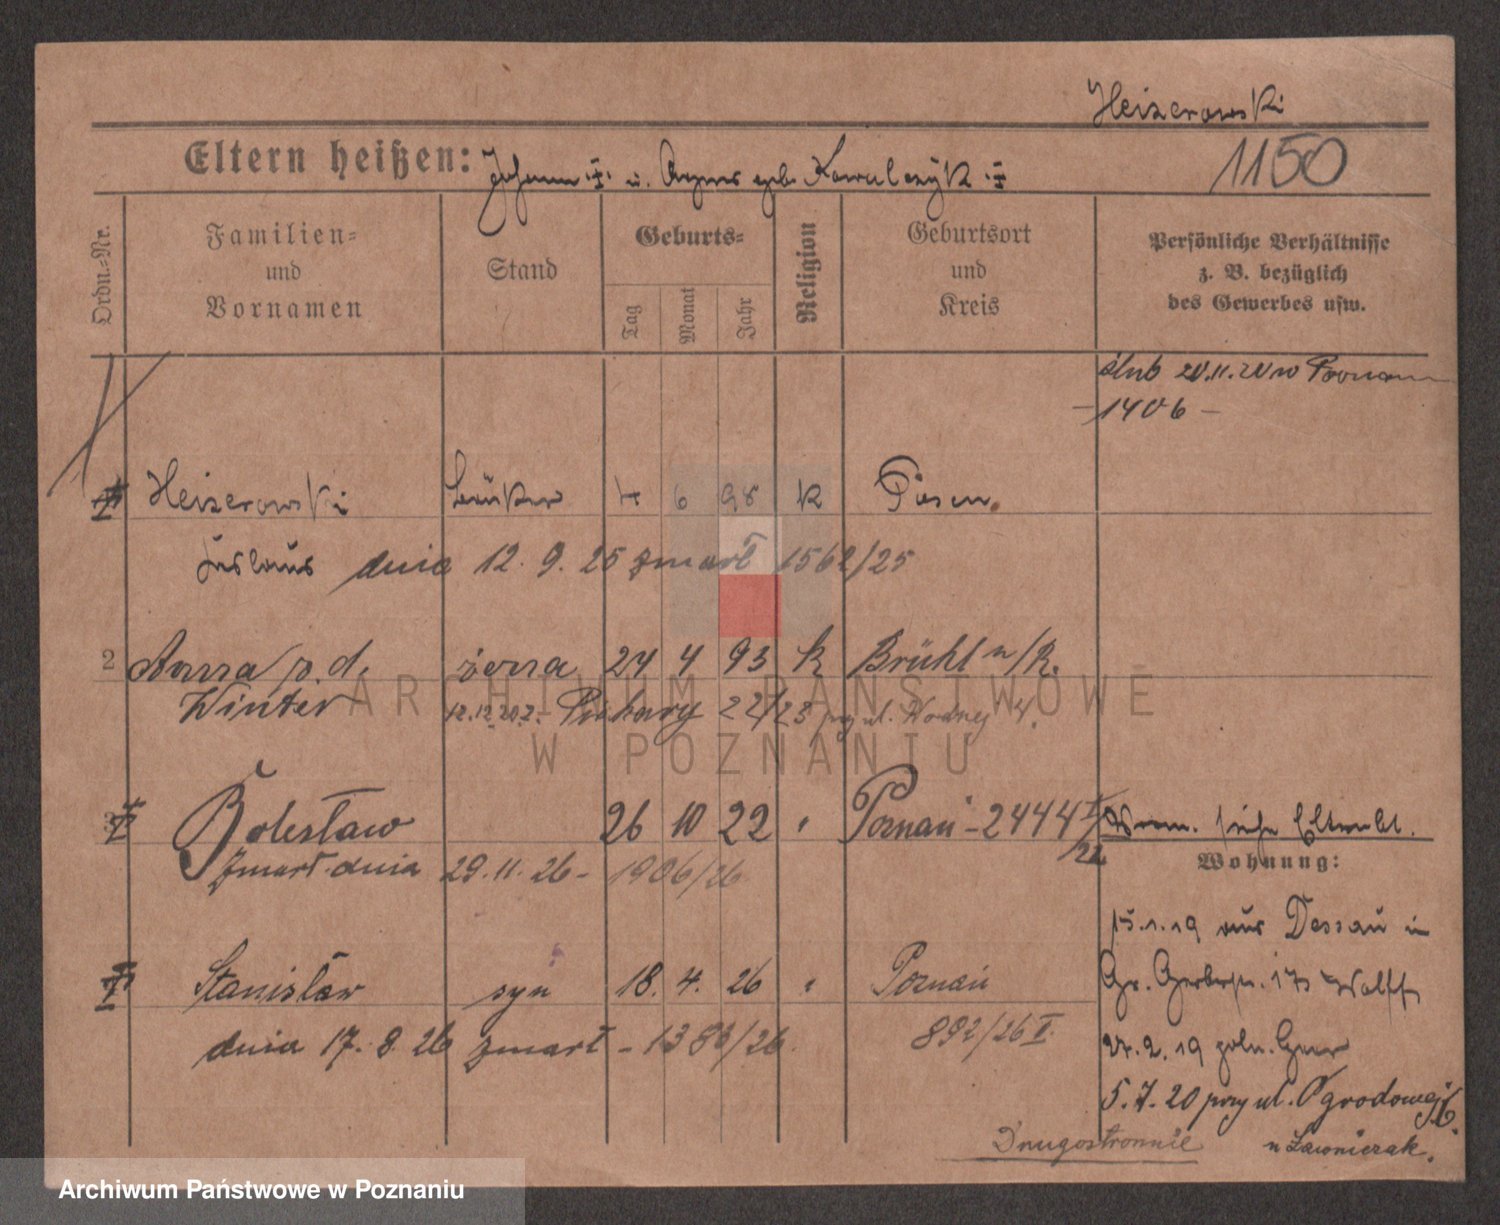 Heizerowski
Eltern heißen: Johann ‡ u. Agnes geb. Kowalczyk ‡
1150
Ordn.-Nr.
Familien- und Vornamen
Stand
Geburts-
Tag
Monat
Jahr
Religion
Geburtsort und Kreis
Persönliche Verhältnisse
z. B. bezüglich
des Gewerbes usw.
ślub 20.11.20 w Poznan
-1406-
Heizerowski 6 98 k Posen.
dnia 12. 9. 25 zmarł 1562/25
2 Anna p. d. żona 24 4 93 k Brühl n/R.
Winter 12.12.20 z. Piekary 22/23 przy ul. Wodnej 4.
Bolesław 26 10 22 " Poznań - 2444
/22
siehe
Zmarł dnia 29. 11. 26 - 1906/26
Wohnung:
15.1.19 aus Dessau in
Stanisław syn 18. 4. 26 " Poznań
Gr. Gerberstr. 17 Wolff
dnia 17. 8. 26 zmarł - 1383/26. 892/26 II.
2. 19
5. 7. 20 przy ul. Ogrodowej
Drugostronnie
u Ławniczak.
ARCHIWUM PAŃSTWOWE
W POZNANIU
Archiwum Państwowe w Poznaniu